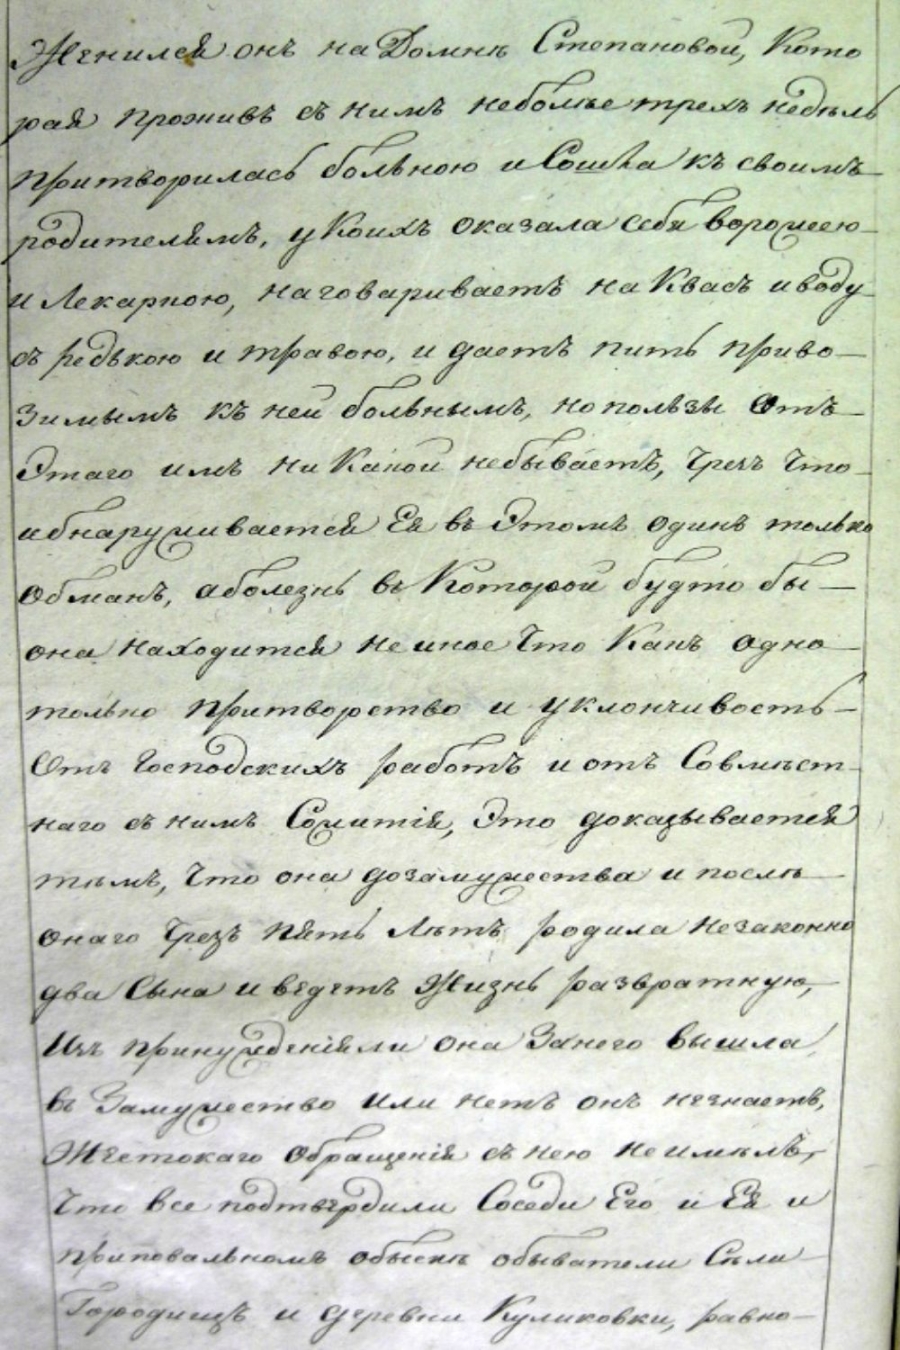 Женился онъ на Домнѣ Степановой, Кото
рая проживъ съ нимъ неболѣе трехъ недѣль
притворилась больною и Сошла къ своимъ
родителямъ, у Коихъ оказала себя ворожеею
и Лекаркою, наговариваетъ на Квасъ и воду
съ редькою и травою, и даетъ пить приво-
зимымъ къ ней больнымъ, но пользы отъ
Этаго имъ ни Какой небываетъ, Чрезъ Что
и обнаруживается Ея въ Этомъ одинъ только
Обманъ, а болезнь въ Которой будто бы
она находится не иное Что Какъ одно
только притворство и уклончивость
Отъ Господскихъ работъ и отъ Совмѣст
наго съ нимъ Сожитія, Это доказывается
тѣмъ, Что она дозамужества и послѣ
онаго Чрезъ пять Лѣтъ родила незаконно
два Сына и ведетъ Жизнь развратную,
Изъ принужденія ли она Занего вышла
въ Замужество или нетъ онъ незнаетъ,
Жестокаго обращенія съ нею неимѣлъ,
Что все подтвердили Соседи Его и Ея и
приповальномъ обыскѣ обыватели Сѣла
Городищъ и деревни Куликовки, равно-